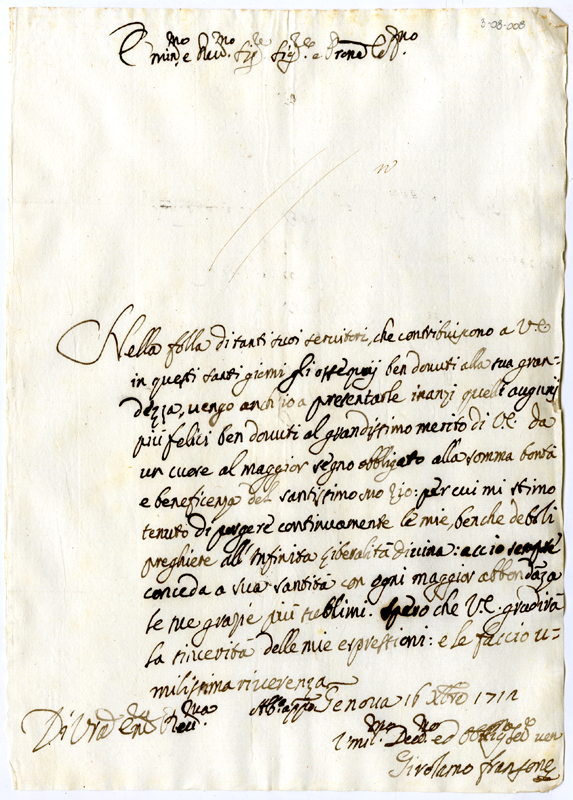 3-08-008
Emin.mo e Rev.mo Sig.re Sig.re e Prone Col.mo
Nella folla di tanti suoi servitori, che contribuiscono a V.E.
in questi santi giorni gli ossequij ben dovuti alla sua gran=
dezza, vengo anch'io a presentarle inanzi quelli augurij
più felici ben dovuti al grandissimo merito di V.E. da
un cuore al maggior segno obbligato alla somma bontà
e beneficenza del santissimo suo zio: per cui mi stimo
tenuto di porgere continuamente le mie, benche deboli
preghiere all'Infinita liberalità divina: acciò sempre
conceda a sua santità con ogni maggior abbondãza
le sue grazie più sublimi. Spero che V.E. gradirà
la sincerità delle mie espressioni: e le faccio u=
milissima riverenza
Genova 16 Xbre 1712
Di Vra Em.za Rev.ma
Umil.mo Dev.mo ed Obblig.mo ser.
Girolamo Fransone